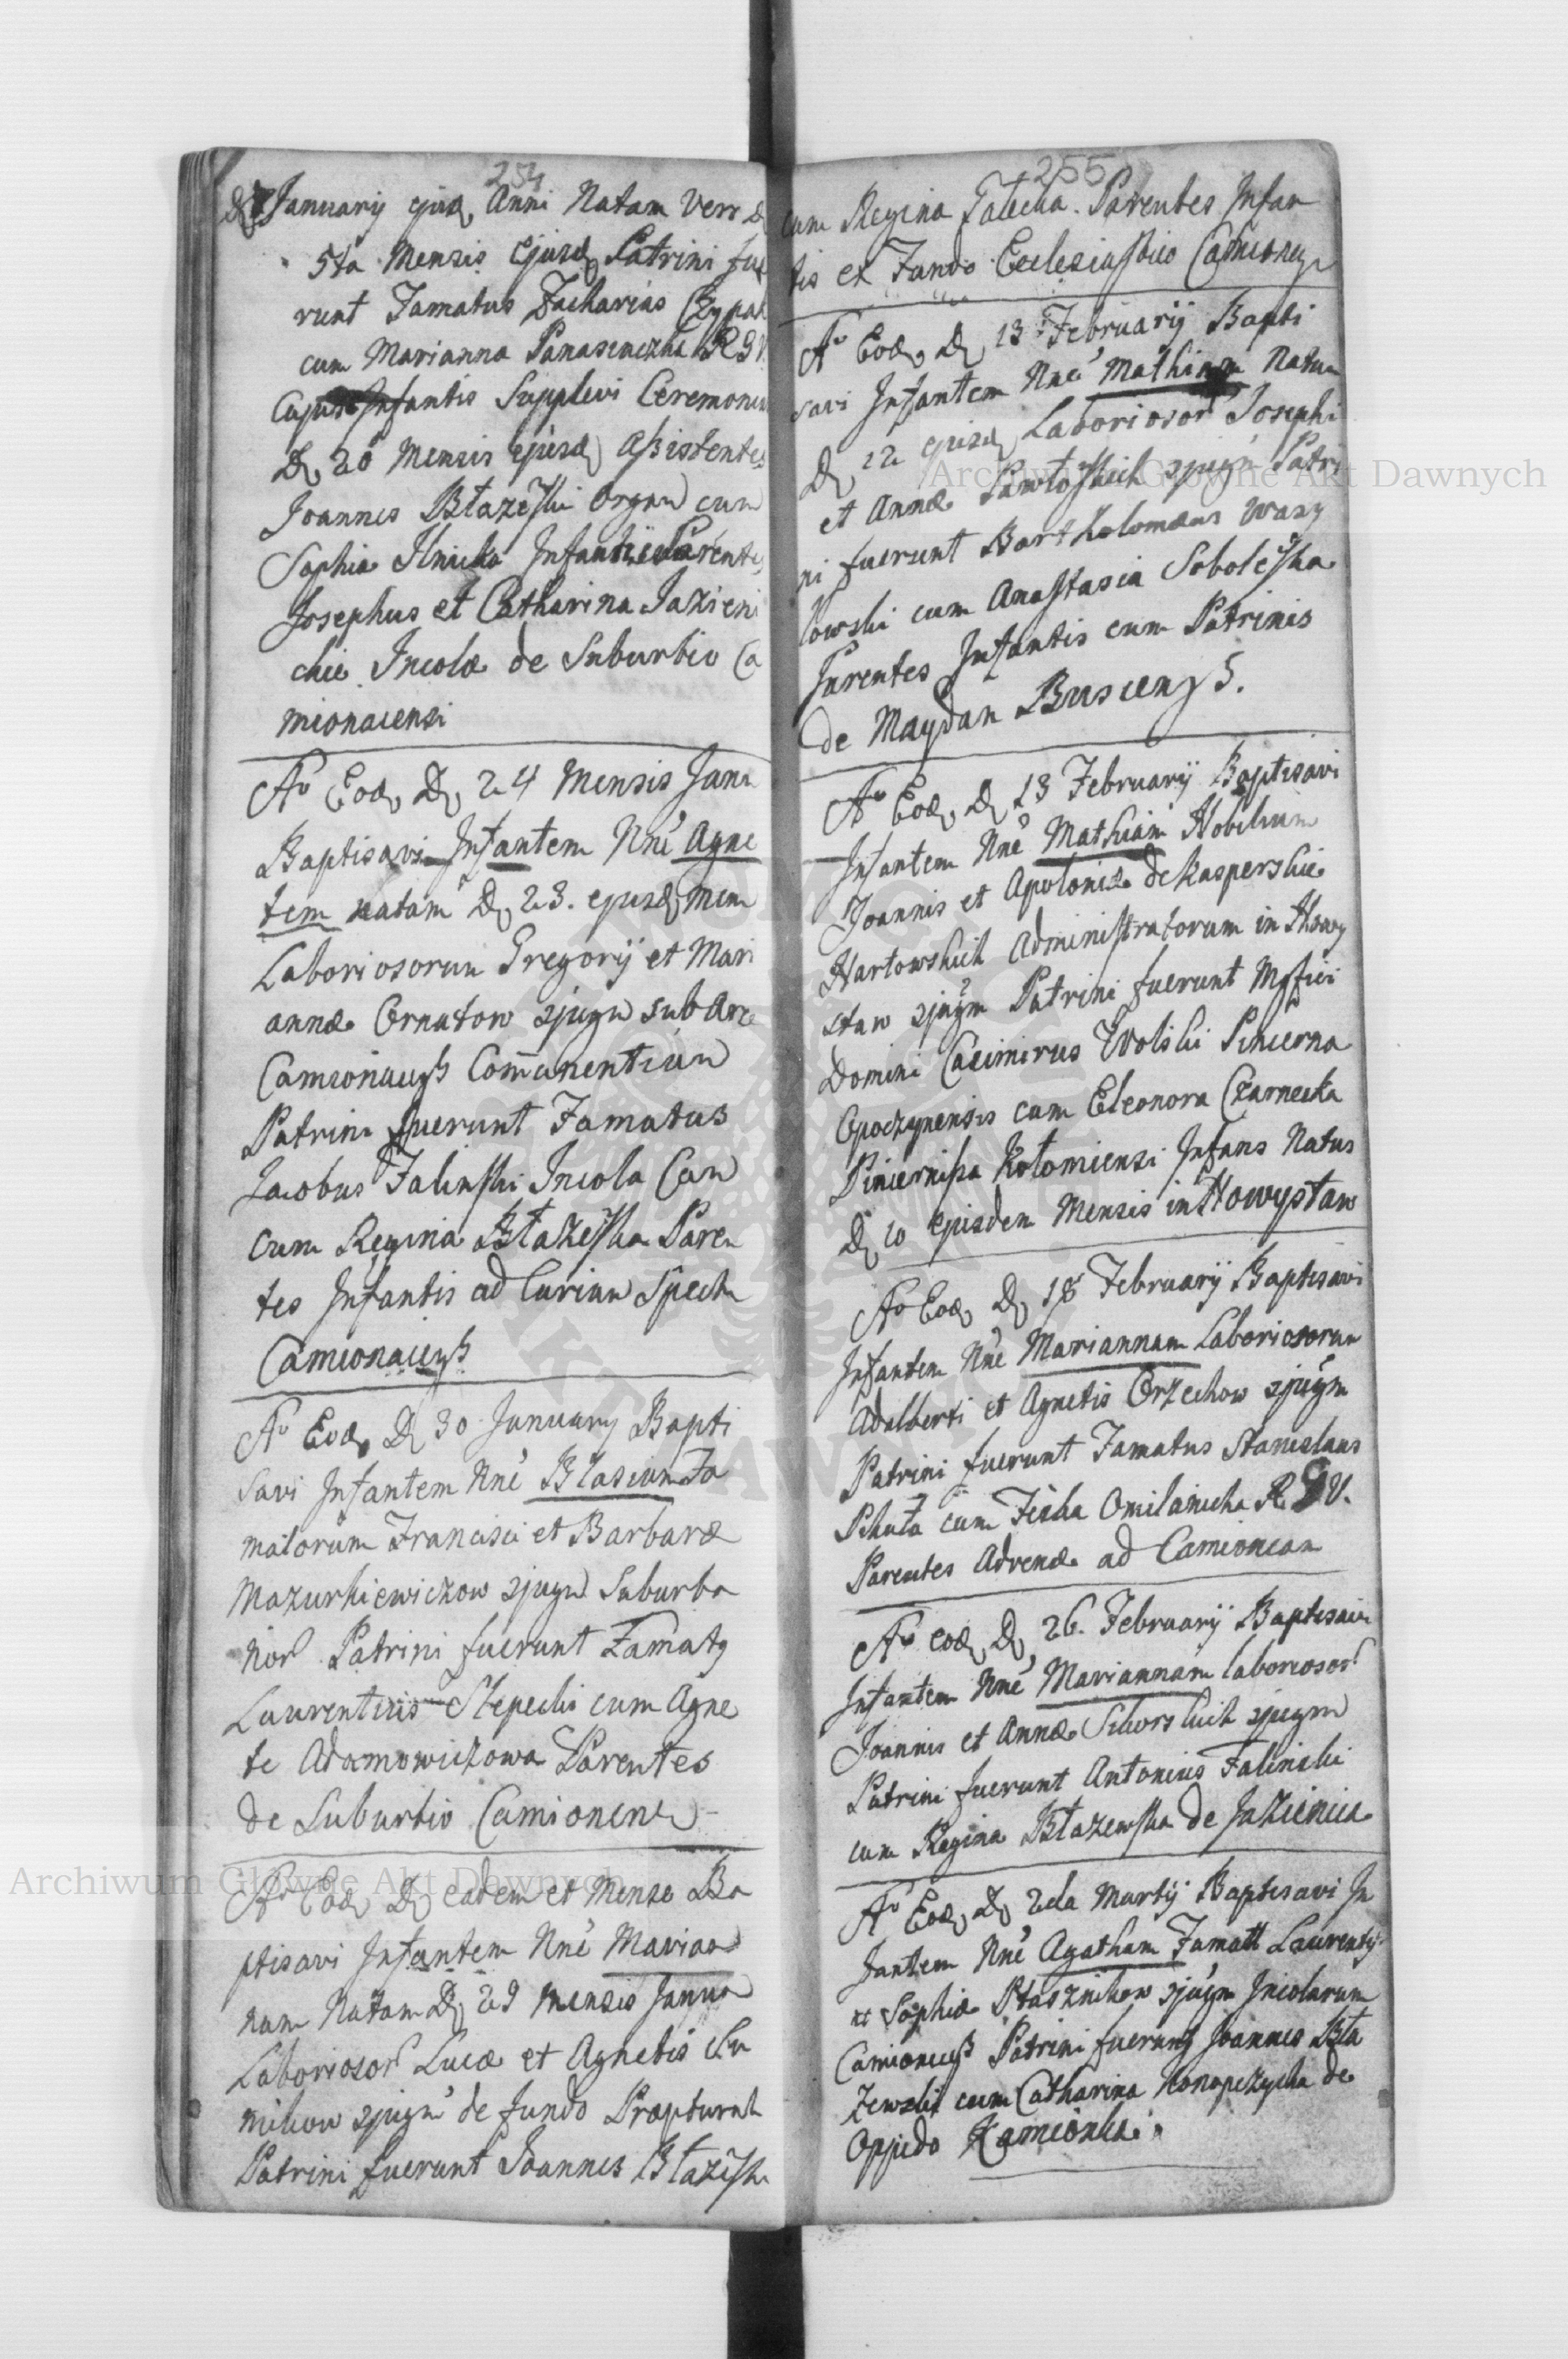 254
D 7 January ejusd Anni Natam Vero D
5ta Mensis Ejusd Patrini fue
runt Famatus Zacharias Czypak
cum Marianna Panasewiczka R G V
Cujus Infantis Supplevi Ceremonia
D 20 Mensis ejusd Assistentes
Joannes Błażeski Organ cum
Sophia Ilnicka Infantis Parentes
Josephus et Catharina Jazieni
chie Incolæ de Suburbio Ca
mionacensi
Ao Eod D 24 Mensis Janu
Baptisavi Infantem Nne Agne
tem natam D 23. ejusd Men
Laboriosorum Gregorij et Mari
annæ Ornatow sjugm sub Arce
Camionacens Commanentium
Patrini fuerunt Famatus
Jacobus Falinski Incola Cam
cum Regina Błażeska Paren
tes Infantis ad Curiam Spect
Camionacens
Ao Eod D 30 January Bapti
savi Infantem Nne Blasium Fa
matorum Francisci et Barbaræ
Mazurkiewiczow sjugm Suburba
nor Patrini fuerunt Famatq
Laurentius Stepecki cum Agne
te Adamowiczowa Parentes
de Suburbio Camionen
Ao Eod D eadem et Mense Ba
ptisavi Infantem Nne Marian
nam Natam D 29 Mensis Janua
Laboriosor Lucæ et Agnetis
sjugm de fundo
Patrini fuerunt Joannes Błażeski
255
cum Regina Falecka. Parentes Infan
tis ex Fundo Ecclesiastico Camionen
Ao Eod D 13 Februarij Bapti
savi Infantem Nne Mathiam Natum
D 12 ejusd Laboriosor Josephi
et Annæ Pawłoskich sjugm Patri
ni fuerunt Bartholomæus Wasy
lowski cum Anastasia Soboleska
Parentes Infantis cum Patrinis
de Maydan Buscens.
Ao Eod D 13 Februarij Baptisavi
Infantem Nne Mathiam Nobilium
Joannis et Apoloniæ de Kasperskie
Hartowskich Administratorum in Nowy
staw sjugm Patrini fuerunt Mgfici
Domini Casimirus Wolski Pincerna
Opoczynensis cum Eleonora Czarnecka
Pincernissa Kołomiensi Infans Natus
D 10 Ejusdem Mensis in Nowystaw
Ao Eod D 18 Februarij Baptisavi
Infantem Nne Mariannam Laboriosorum
Adalberti et Agnetis Orzechow sjugm
Patrini fuerunt Famatus Stanislaus
Pchuta cum Fecka Omilanicha R G V.
Parentes Advenæ ad Camioncam
Ao Eod D 26. Februarij Baptisavi
Infantem Nne Mariannam laboriosor
Joannis et Annæ Sikorskich sjugm
Patrini fuerunt Antonius Falinski
cum Regina Błażewska de Jazienica
Ao Eod D 2da Martij Baptisavi In
fantem Nne Agatham Famatt Laurentij
et Sophiæ Ptasznikow sjugm Incolarum
Camioncens Patrini fuerunt Joannes Bła
żewski cum Catharina Konopczycka de
Oppido Kamionka.
Archiwum Główne Akt Dawnych
Archiwum Główne Akt Dawnych